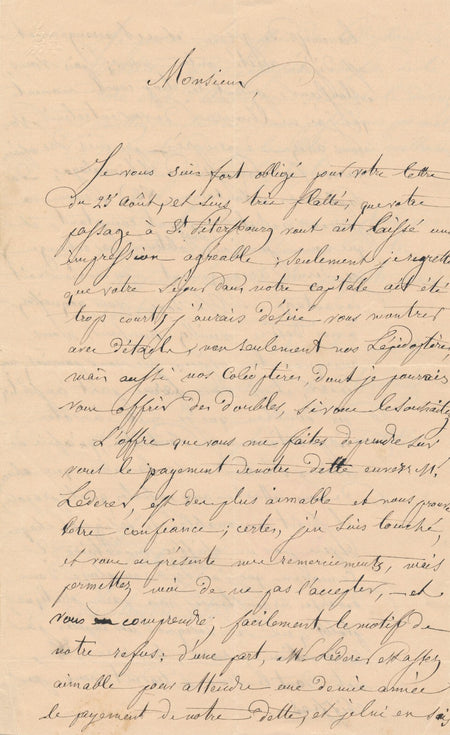 Monsieur,
Je vous suis fort obligé pour votre lettre
du 25 Août, et suis très flatté, que votre
passage à St Pétersbourg vous ait laissé une
impression agreable; seulement je regrette
que votre séjour dans notre capitale ait été
trop court, j'aurais désiré vous montrer
avec détails, non seulement nos Lépidoptères
mais aussi nos coléoptères, dont je pourrais
vous offrir des doubles, si vous le souhaitez
L'offre que vous me faites de prendre sur
vous le payement de notre dette envers Mr
Lederer, est des plus aimable et nous prouve
votre confiance; certes, j'en suis touché,
et vous en présente mes remerciements, mais
permettez moi de ne pas l'accepter, et
vous comprendrez facilement le motif de
notre refus: d'une part, Mr Lederer est assez
aimable pour attendre une demie année
le payement de notre dette, et je lui en